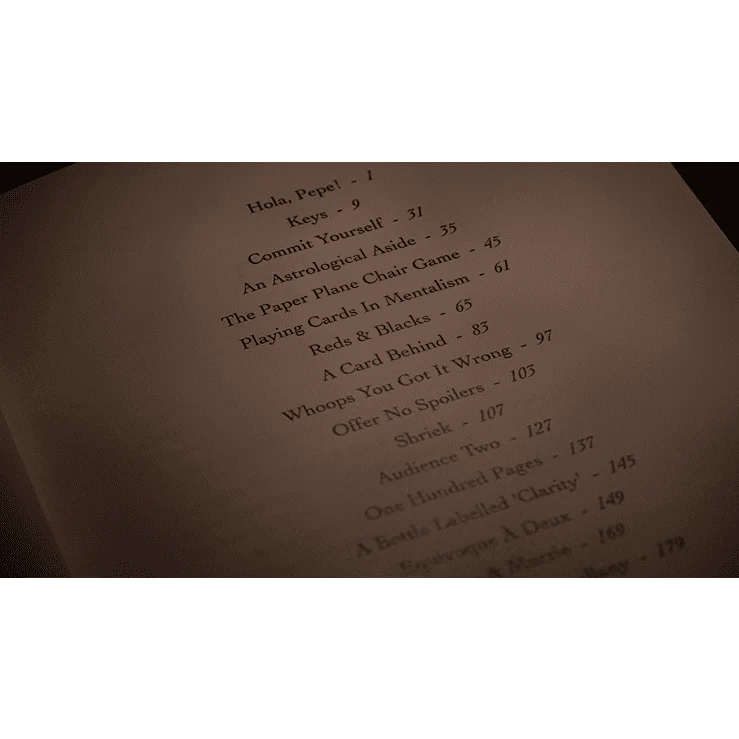 Hola, Pepe! - 1
Keys - 9
Commit Yourself - 31
An Astrological Aside - 35
The Paper Plane Chair Game - 45
Playing Cards In Mentalism - 61
Reds & Blacks - 65
A Card Behind - 83
Whoops You Got It Wrong - 97
Offer No Spoilers - 103
Shriek - 107
Audience Two - 127
One Hundred Pages - 137
A Bottle Labelled 'Clarity' - 145
Equivoque À Deux - 149
& Morrie - 169
- 179